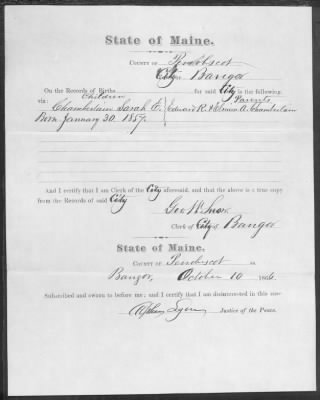 State of Maine.
COUNTY OF Penobscot
City of Bangor
On the Records of Births for said City is the following,
Children Parents
viz: Chamberlain Sarah E. Edward R. & A. Chamberlain
Born January 30. 1857.
And I certify that I am Clerk of the City aforesaid, and that the above is a true copy
from the Records of said City
Geo W. Snow.
Clerk of City of Bangor
State of Maine.
COUNTY OF Penobscot ss
Bangor, October 10 1866.
Subscribed and sworn to before me; and I certify that I am disinterested in this case
Lyon Justice of the Peace.